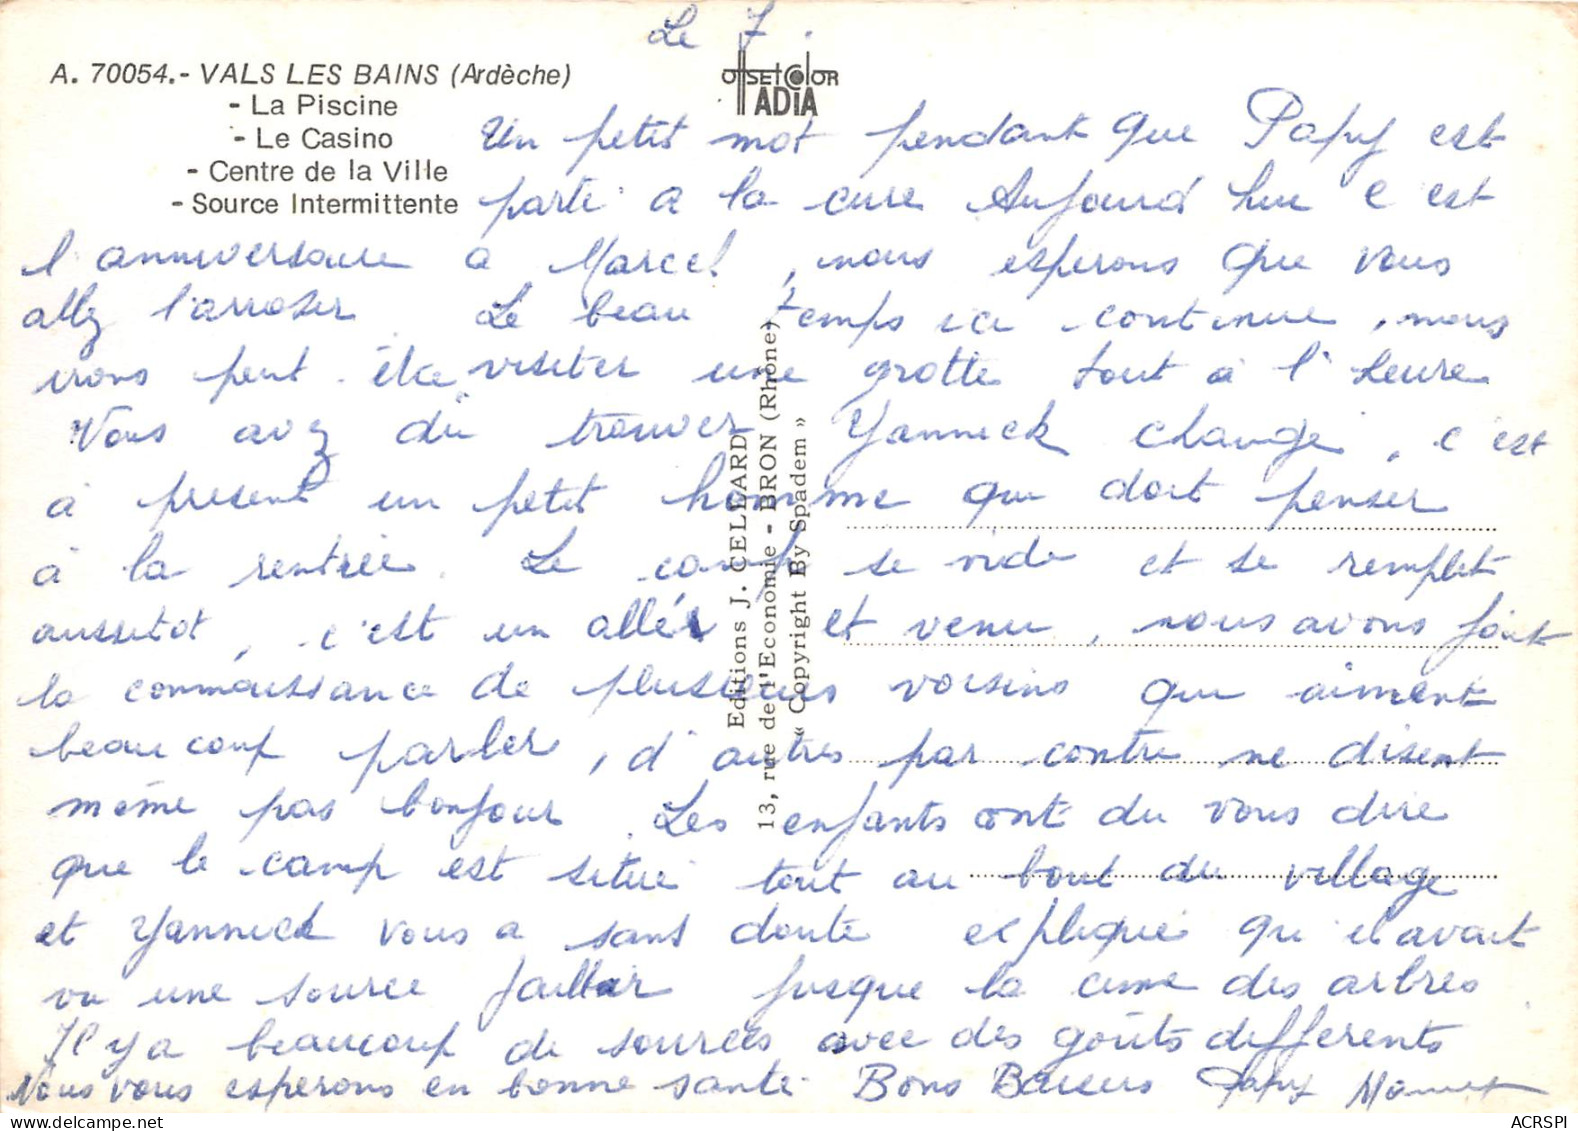 Le 7.
A. 70054.- VALS LES BAINS (Ardèche)
- La Piscine
- Le Casino
- Centre de la Ville
- Source Intermittente
OFFSET COLOR
ADIA
Un petit mot pendant que Papy est
parti a la cure Aujourd hui c est
l anniversaire a Marcel, nous esperons que vous
allez l'arroser Le beau temps ici continue, nous
irons peut-être visiter une grotte tout à l'heure
Vous avez du trouver Yannick changé, c'est
à present un petit homme qui doit penser
à la rentrée. Le camp se vide et se remplit
aussitot, c'est un allér et venu, nous avons fait
la connaissance de plusieurs voisins qui aiment
beaucoup parler, d'autres par contre ne disent
même pas bonjour. Les enfants ont du vous dire
que le camp est situé tout au bout du village
et Yannick vous a sans doute expliqué qu il avait
vu une source jaillir jusque la cime des arbres
Il y a beaucoup de sources avec des goûts differents
Nous vous esperons en bonne santé. Bons Baisers Papy Mamy
Editions J. CELLARD
13, rue de l'Economie - BRON (Rhône)
« Copyright By Spadem »
ACRSPI